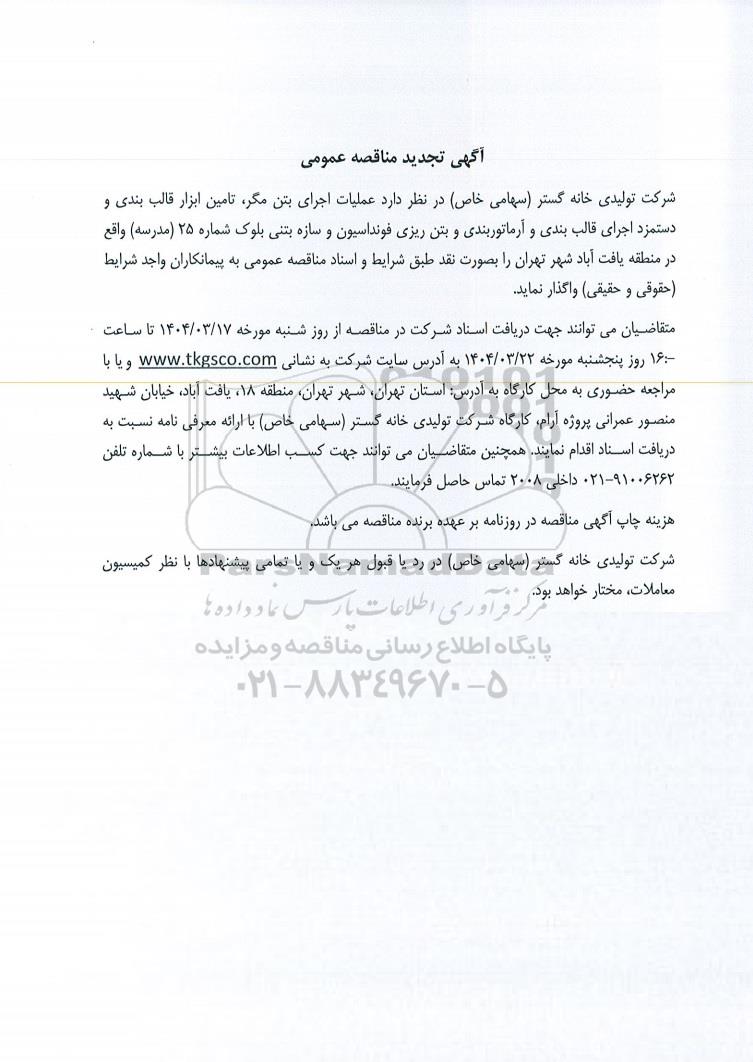 آگهی تجدید مناقصه عمومی
شرکت تولیدی خانه گستر (سهامی خاص) در نظر دارد عملیات اجرای بتن مگر، تامین ابزار قالب بندی و
دستمزد اجرای قالب بندی و آرماتوربندی و بتن ریزی فونداسیون و سازه بتنی بلوک شماره ۲۵ (مدرسه) واقع
در منطقه یافت آباد شهر تهران را بصورت نقد طبق شرایط و اسناد مناقصه عمومی به پیمانکاران واجد شرایط
(حقوقی و حقیقی) واگذار نماید.
متقاضیان می توانند جهت دریافت اسناد شرکت در مناقصه از روز شنبه مورخه ۱۴۰۴/۰۳/۱۷ تا ساعت
۱۶:- روز پنجشنبه مورخه ۱۴۰۴/۰۳/۲۲ به آدرس سایت شرکت به نشانی www.tkgsco.com و یا با
مراجعه حضوری به محل کارگاه به آدرس: استان تهران، شهر تهران، منطقه ۱۸، یافت آباد، خیابان شهید
منصور عمرانی پروژه آرام، کارگاه شرکت تولیدی خانه گستر (سهامی خاص) با ارائه معرفی نامه نسبت به
دریافت اسناد اقدام نمایند. همچنین متقاضیان می توانند جهت کسب اطلاعات بیشتر با شماره تلفن
۰۲۱-۹۱۰۰۶۲۶۲ داخلی ۲۰۰۸ تماس حاصل فرمایند.
هزینه چاپ آگهی مناقصه در روزنامه بر عهده برنده مناقصه می باشد.
شرکت تولیدی خانه گستر (سهامی خاص) در رد یا قبول هر یک و یا تمامی پیشنهادها با نظر کمیسیون
معاملات، مختار خواهد بود.
ParsNamadData
مرکز فرآوری اطلاعات پارس نماد داده ها
پایگاه اطلاع رسانی مناقصه و مزایده
۰۲۱-۸۸۳۴۹۶۷۰-۵